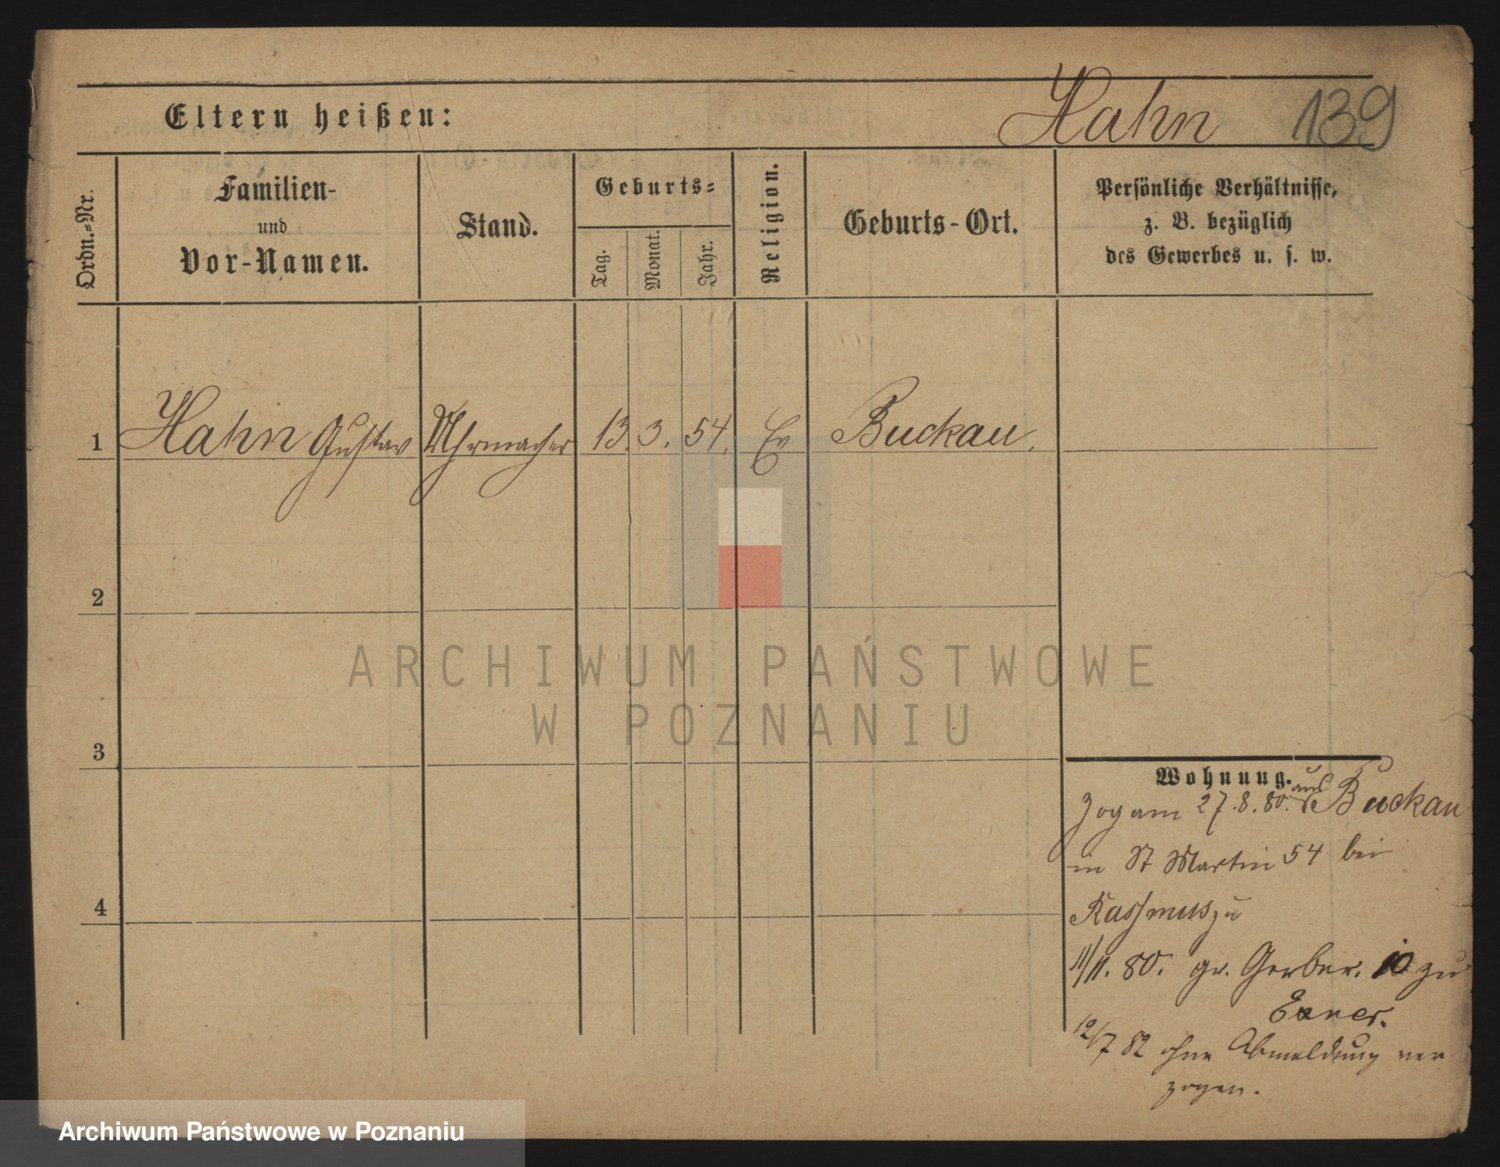 Eltern heißen: Hahn 139
Ordn.=Nr.
Familien-
und
Vor-Namen.
Stand.
Geburts=
Tag.
Monat.
Jahr.
Religion.
Geburts-Ort.
Persönliche Verhältnisse,
z. B. bezüglich
des Gewerbes u. s. w.
1 Hahn Gustav Uhrmacher 13. 3. 54. Ev Buckau.
2
3
4
Wohnung.
Zog am 27.8.80. aus Buckau
in St Martin 54 bei
Kassmus zu
11/11. 80. gr. Gerber. 10 zu
Exner.
12/7 82 ohne Abmeldung ver
zogen.
ARCHIWUM PAŃSTWOWE
W POZNANIU
Archiwum Państwowe w Poznaniu